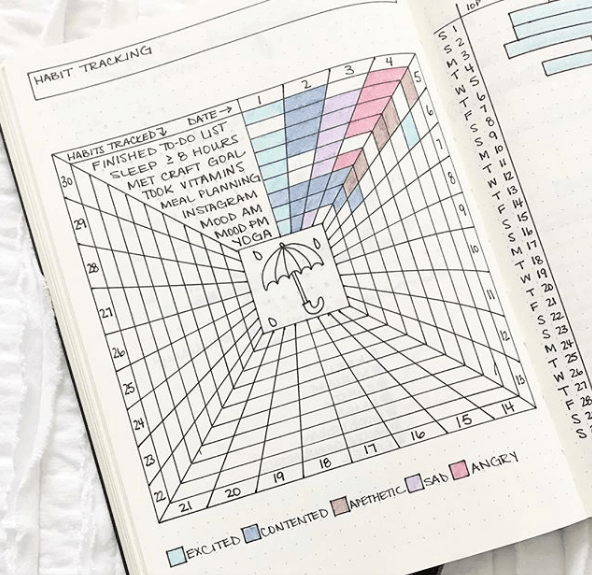 HABIT TRACKING
HABITS TRACKED↓ DATE→
FINISHED TO-DO LIST
SLEEP ≥ 8 HOURS
MET CRAFT GOAL
TOOK VITAMINS
MEAL PLANNING
INSTAGRAM
MOOD AM
MOOD PM
YOGA
1
2
3
4
5
6
7
8
9
10
11
12
13
14
15
16
17
18
19
20
21
22
23
24
25
26
27
28
29
30
EXCITED CONTENTED APETHETIC SAD ANGRY
10P
S 1
S 2
M 3
T 4
W 5
T 6
F 7
S 8
S 9
M 10
T 11
W 12
T 13
F 14
S 15
S 16
M 17
T 18
W 19
T 20
F 21
S 22
S 23
M 24
T 25
W 26
T 27
F 28
S 2
S